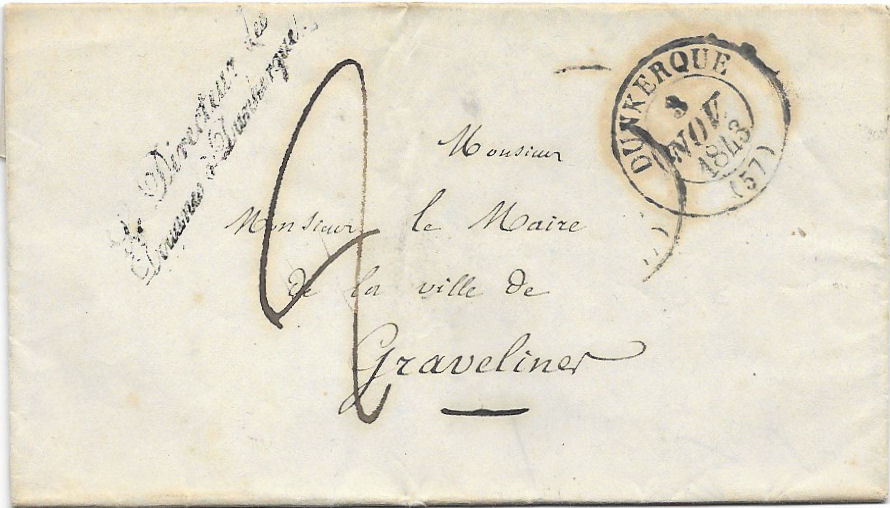 Le Directeur des
Douanes à Dunkerque.
DUNKERQUE
3
NOV.
1843
(57)
Monsieur
Monsieur le Maire
de la ville de
Gravelines